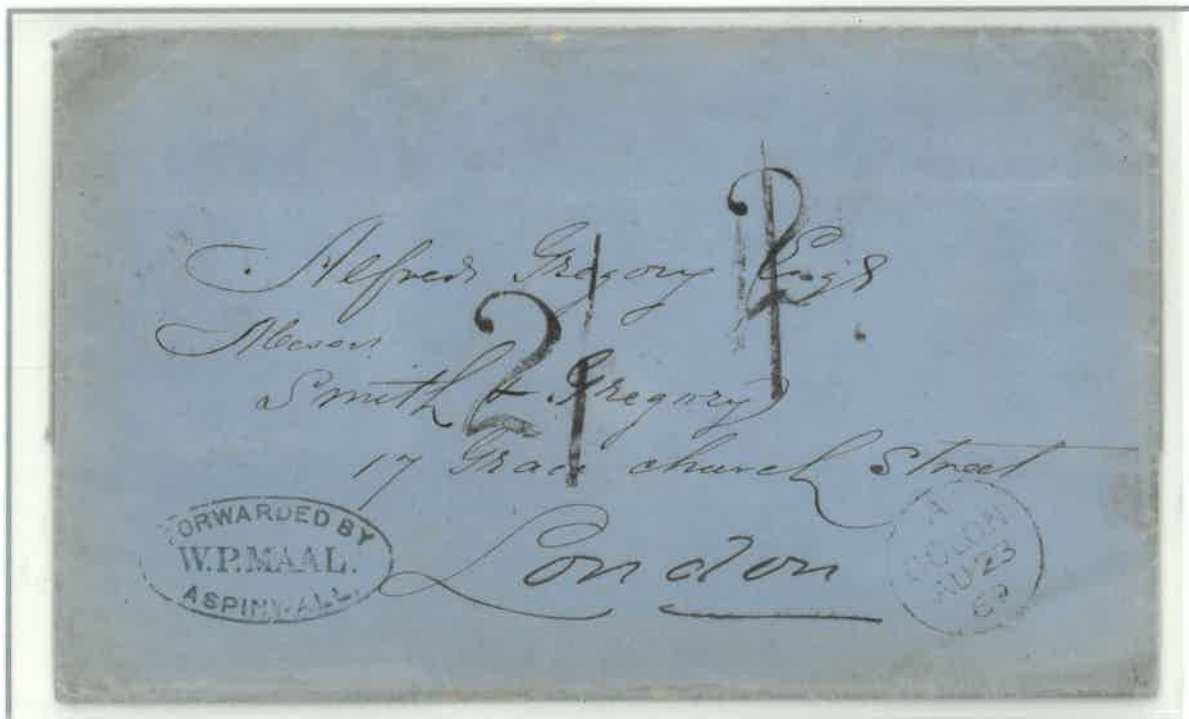 Alfred Gregory Esqr
Messrs
Smith & Gregory
17 Grace church Street
London
2/
FORWARDED BY
W.P.MAAL.
ASPINWALL.
A
COLON
AU 23
69